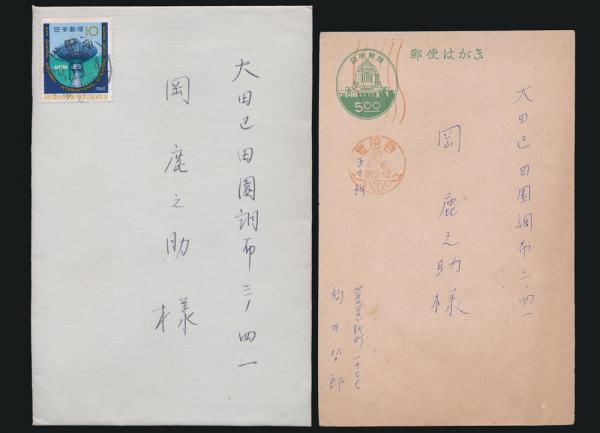 日本郵便 10
大田区田園調布二ノ四一
岡鹿之助様
日本郵便
5.00
郵便はがき
世田谷
27
大田区田園調布二ノ四一
岡鹿之助様
駒井哲郎